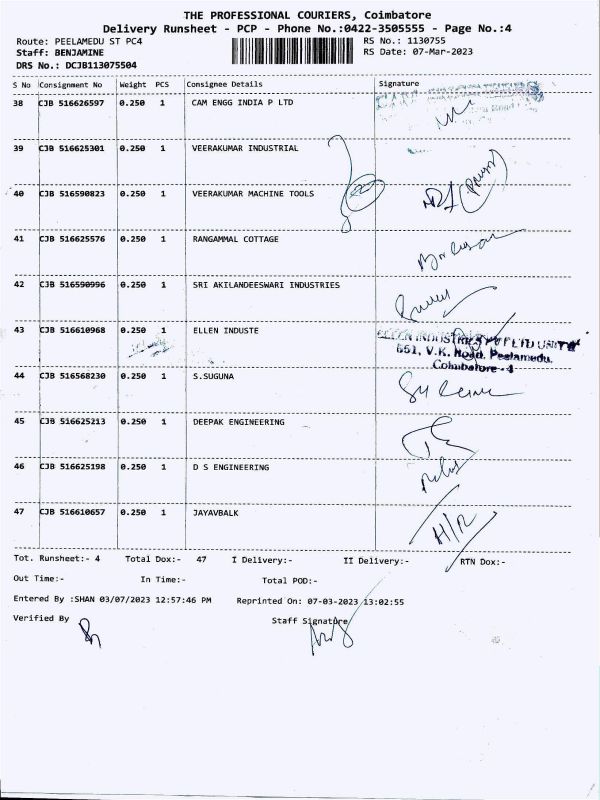 THE PROFESSIONAL COURIERS, Coimbatore
Delivery Runsheet - PCP - Phone No.:0422-3505555 - Page No.:4
Route: PEELAMEDU ST PC4 RS No.: 1130755
Staff: BENJAMINE RS Date: 07-Mar-2023
DRS No.: DCJB113075504
S No Consignment No Weight PCS Consignee Details Signature
38 CJB 516626597 0.250 1 CAM ENGG INDIA P LTD
39 CJB 516625301 0.250 1 VEERAKUMAR INDUSTRIAL
40 CJB 516590823 0.250 1 VEERAKUMAR MACHINE TOOLS
41 CJB 516625576 0.250 1 RANGAMMAL COTTAGE
42 CJB 516590996 0.250 1 SRI AKILANDEESWARI INDUSTRIES
43 CJB 516610968 0.250 1 ELLEN INDUSTE
ELLEN INDUSTRIES PVT LTD UNIT
651, V.K. Road, Peelamedu,
Coimbatore - 4
44 CJB 516568230 0.250 1 S.SUGUNA
45 CJB 516625213 0.250 1 DEEPAK ENGINEERING
46 CJB 516625198 0.250 1 D S ENGINEERING
47 CJB 516610657 0.250 1 JAYAVBALK H/R
Tot. Runsheet:- 4 Total Dox:- 47 I Delivery:- II Delivery:- RTN Dox:-
Out Time:- In Time:- Total POD:-
Entered By :SHAN 03/07/2023 12:57:46 PM Reprinted On: 07-03-2023 13:02:55
Verified By Staff Signature